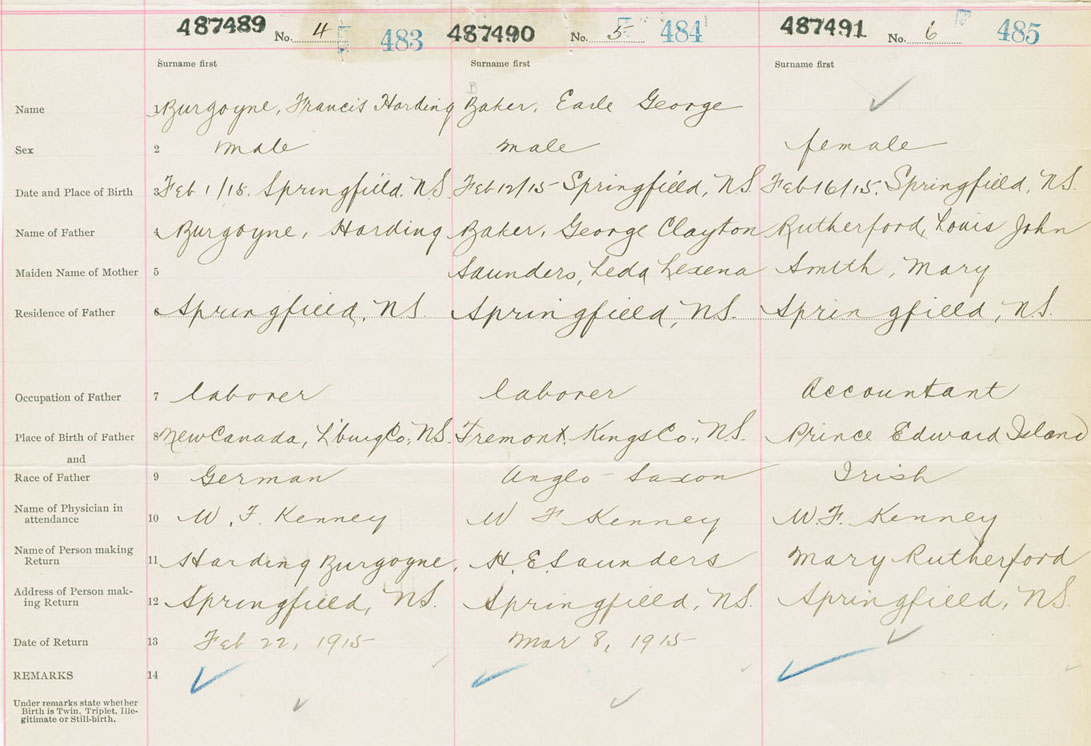 487489 No. 4 483 487490 No. 5 484 487491 No. 6 485
Surname first Surname first Surname first
B
Name 1 Burgoyne, Francis Harding Baker, Earle George
Sex 2 male male female
Date and Place of Birth 3 Feb 1/15. Springfield. N.S. Feb 12/15 Springfield, N.S. Feb 16/15. Springfield, N.S.
Name of Father 4 Burgoyne, Harding Baker, George Clayton Rutherford, Louis John
Maiden Name of Mother 5 Saunders, Leda Lexena Smith, Mary
Residence of Father 6 Springfield, N.S. Springfield, N.S. Springfield, N.S.
Occupation of Father 7 laborer laborer Accountant
Place of Birth of Father 8 New Canada, L'burg Co., N.S. Tremont Kings Co., N.S. Prince Edward Island
and
Race of Father 9 German Anglo-Saxon Irish
Name of Physician in
attendance 10 W. F. Kenney W F Kenney W. F. Kenney
Name of Person making
Return 11 Harding Burgoyne, H. E. Saunders Mary Rutherford
Address of Person mak-
ing Return 12 Springfield, N.S. Springfield, N.S. Springfield, N.S.
Date of Return 13 Feb 22, 1915 Mar 8, 1915
REMARKS 14
Under remarks state whether
Birth is Twin, Triplet, Ille-
gitimate or Still-birth.